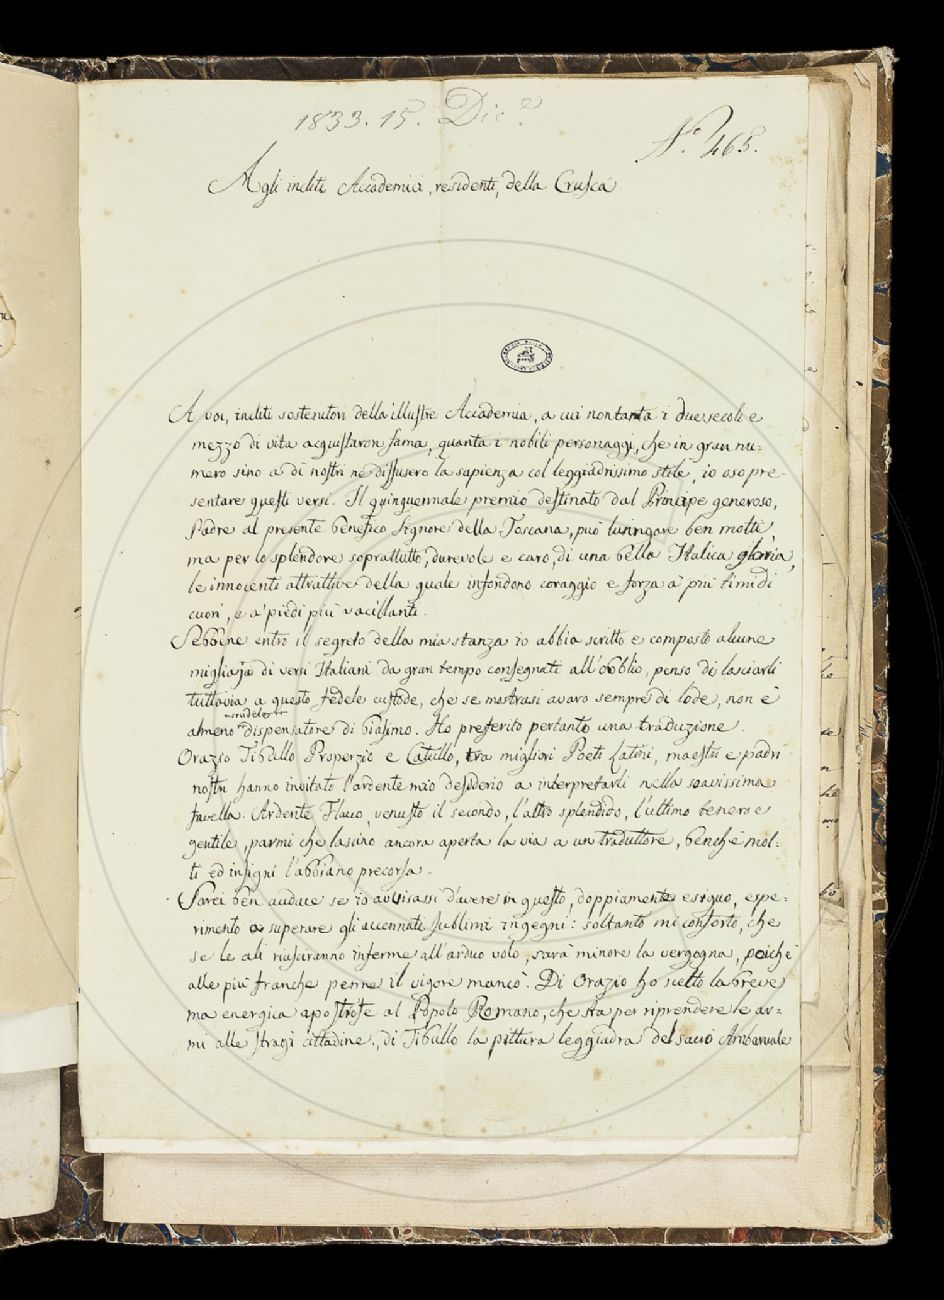 1833. 15. Dic.e
N.o 465.
Agli incliti Accademici, residenti, della Crusca
A voi, incliti sostenitori della illustre Accademia, a cui non tanta i due secoli e
mezzo di vita acquistaron fama, quanta i nobili personaggi, che in gran nu=
mero sino a dì nostri ne diffusero la sapienza col leggiadrissimo stile, io oso pre=
sentare questi versi. Il quinquennale premio destinato dal Principe generoso,
Padre al presente benefico Signore della Toscana, può lusingare ben molti,
ma per lo splendore soprattutto, durevole e caro, di una bella Italica gloria,
le innocenti attrattive della quale infondono coraggio e forza a' più timidi
cuori, e a' piedi più vacillanti.
Sebbene entro il segreto della mia stanza io abbia scritto e composto alcune
migliaja di versi Italiani da gran tempo consegnati all'obblio, penso di lasciarli
tuttavia a questo fedele custode, che se mostrasi avaro sempre di lode, non è
almeno dispensatore di biasimo. Ho preferito pertanto una traduzione.
Orazio Tibullo Properzio e Catullo, tra migliori Poeti Latini, maestri e padri
nostri hanno invitato l'ardente mio desiderio a interpretarli nella soavissima
favella. Ardente Flacco, venusto il secondo, l'altro splendido, l'ultimo tenero e
gentile, parmi che lascino ancora aperta la via a un traduttore, benchè mol=
ti ed insigni l'abbiano precorsa.
Sarei ben audace se io avvisassi d'avere in questo, doppiamente esiguo, espe=
rimento a superare gli accennati sublimi ingegni: soltanto mi conforto, che
se le ali riusciranno inferme all'arduo volo, sarà minore la vergogna, poichè
alle più franche penne il vigore mancò. Di Orazio ho scelto la breve
ma energica apostrofe al Popolo Romano, che sta per riprendere le ar=
mi alle stragi cittadine, di Tibullo la pittura leggiadra del sacro Ambarvale